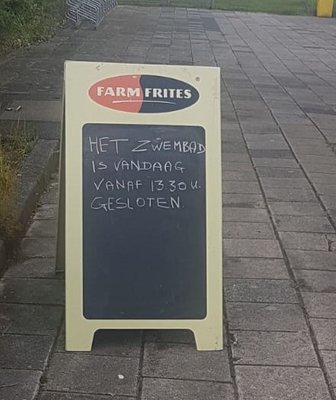 FARM FRITES
HET ZWEMBAD
IS VANDAAG
VANAF 13.30 U.
GESLOTEN.